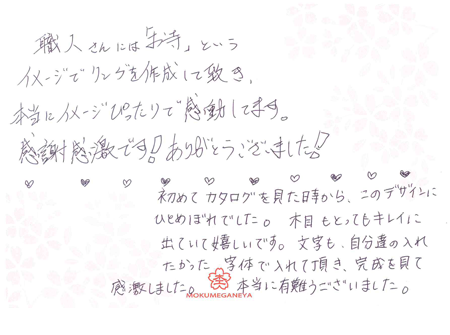 職人さんには「お寺」という
イメージでリングを作成して戴き、
本当にイメージぴったりで感動してます。
感謝感激です!ありがとうございました!
初めてカタログを見た時から、このデザインに
ひとめぼれでした。木目もとってもキレイに
出ていて嬉しいです。文字も、自分達の入れ
たかった字体で入れて頂き、完成を見て
感激しました。本当に有難うございました。
MOKUMEGANEYA